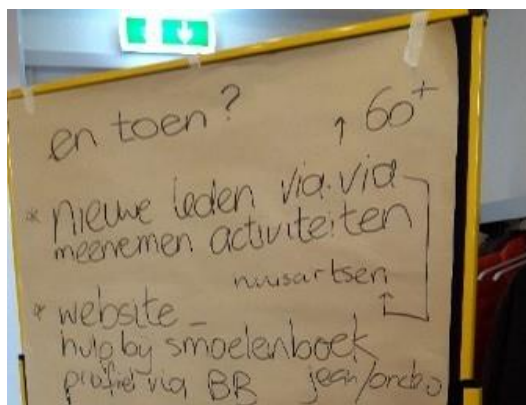 en toen?
↑ 60+
* nieuwe leden via.via
meenemen activiteiten
huisartsen
* website -
hulp bij smoelenboek
profiel via BB jean/